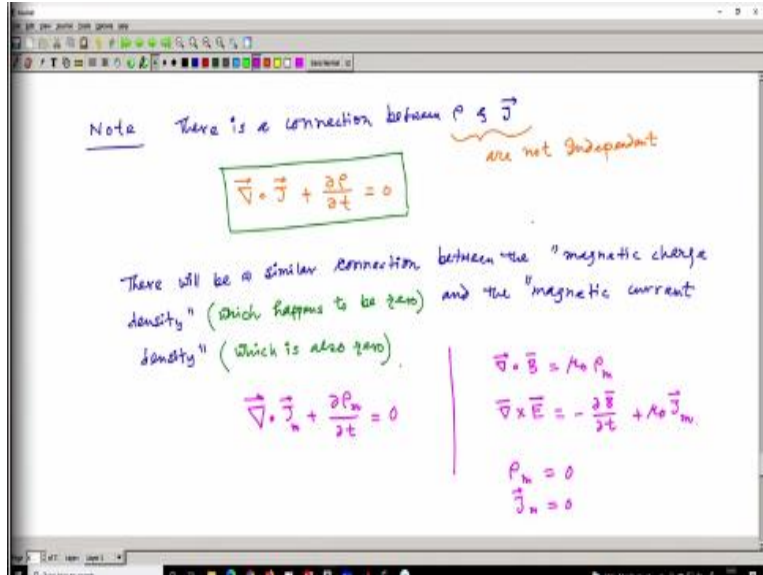 Note There is a connection between ρ & J⃗
are not Independent
∇⃗ · J⃗ + ∂ρ/∂t = 0
There will be a similar connection between the "magnetic charge
density" (which happens to be zero) and the "magnetic current
density" (which is also zero).
∇⃗ · J⃗ₘ + ∂ρₘ/∂t = 0
∇⃗ · B⃗ = μ₀ ρₘ
∇⃗ × E⃗ = - ∂B⃗/∂t + μ₀ J⃗ₘ.
ρₘ = 0
J⃗ₘ = 0